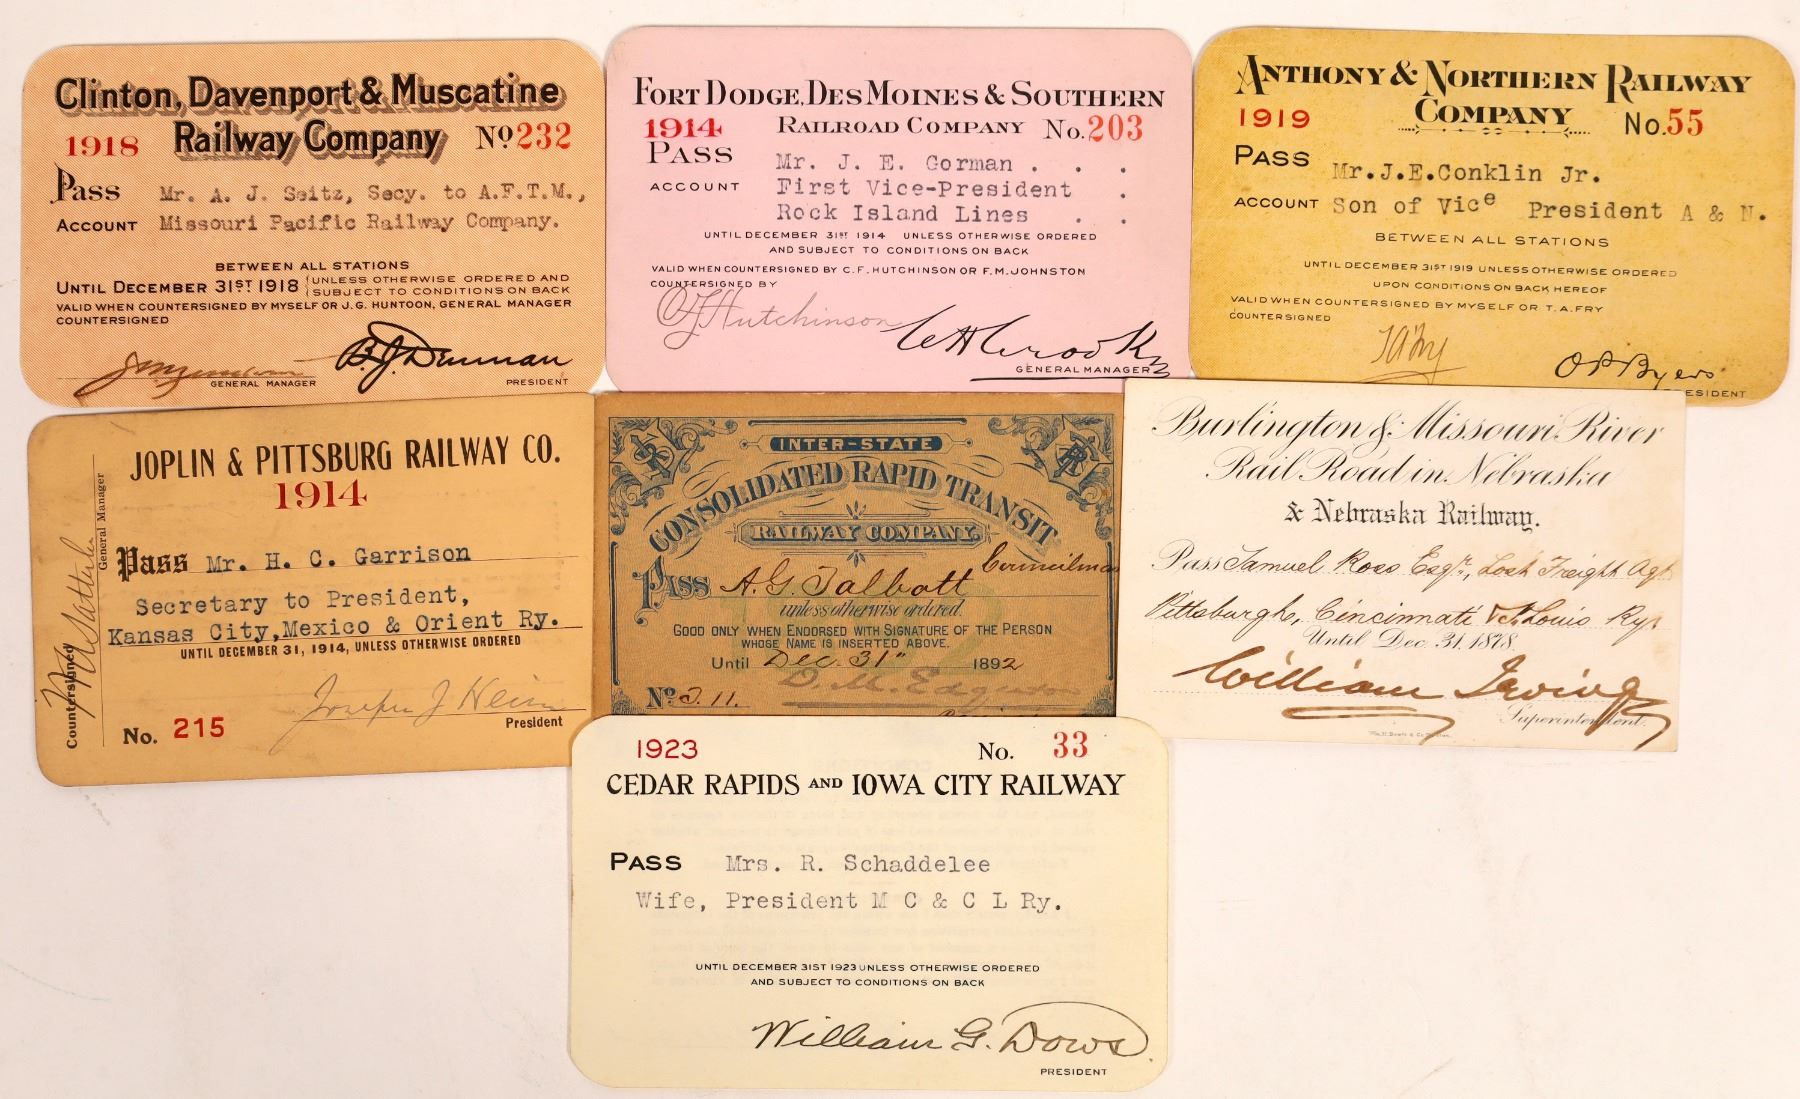 Clinton, Davenport & Muscatine
1918 Railway Company No 232
Pass Mr. A. J. Seitz, Secy. to A.F.T.M.,
ACCOUNT Missouri Pacific Railway Company.
BETWEEN ALL STATIONS
UNTIL DECEMBER 31ST 1918 { UNLESS OTHERWISE ORDERED AND
SUBJECT TO CONDITIONS ON BACK
VALID WHEN COUNTERSIGNED BY MYSELF OR J.G. HUNTOON, GENERAL MANAGER
COUNTERSIGNED
B.J. Denman
GENERAL MANAGER PRESIDENT
FORT DODGE, DES MOINES & SOUTHERN
1914 RAILROAD COMPANY No. 203
PASS Mr. J. E. Gorman . . .
ACCOUNT First Vice-President .
Rock Island Lines . .
UNTIL DECEMBER 31ST 1914 UNLESS OTHERWISE ORDERED
AND SUBJECT TO CONDITIONS ON BACK
VALID WHEN COUNTERSIGNED BY C.F. HUTCHINSON OR F.M. JOHNSTON
COUNTERSIGNED BY
CF Hutchinson CH Crooks
GENERAL MANAGER
ANTHONY & NORTHERN RAILWAY
1919 COMPANY No. 55
PASS Mr.J.E.Conklin Jr.
ACCOUNT Son of Vice President A & N.
BETWEEN ALL STATIONS
UNTIL DECEMBER 31ST 1919 UNLESS OTHERWISE ORDERED
UPON CONDITIONS ON BACK HEREOF
VALID WHEN COUNTERSIGNED BY MYSELF OR T.A. FRY
COUNTERSIGNED
TA Fry O P Byers
PRESIDENT
JOPLIN & PITTSBURG RAILWAY CO.
1914
Pass Mr. H. C. Garrison
Secretary to President,
Kansas City, Mexico & Orient Ry.
UNTIL DECEMBER 31, 1914, UNLESS OTHERWISE ORDERED
Joseph J Heim
No. 215 President
Countersigned
General Manager
INTER-STATE
CONSOLIDATED RAPID TRANSIT
RAILWAY COMPANY.
PASS A. G. Talbott Councilman
unless otherwise ordered.
GOOD ONLY WHEN ENDORSED WITH SIGNATURE OF THE PERSON
WHOSE NAME IS INSERTED ABOVE.
Until Dec. 31st 1892
No. D. M. Edgerton
Burlington & Missouri River
Rail Road in Nebraska
& Nebraska Railway.
Pass Samuel Ross Esqr., Lost Freight Agt
Pittsburgh, Cincinnati & St Louis Ry.
Until Dec. 31, 1878.
William Irving
Superintendent.
1923 No. 33
CEDAR RAPIDS AND IOWA CITY RAILWAY
PASS Mrs. R. Schaddelee
Wife, President M C & C L Ry.
UNTIL DECEMBER 31ST 1923 UNLESS OTHERWISE ORDERED
AND SUBJECT TO CONDITIONS ON BACK
William G. Dows
PRESIDENT